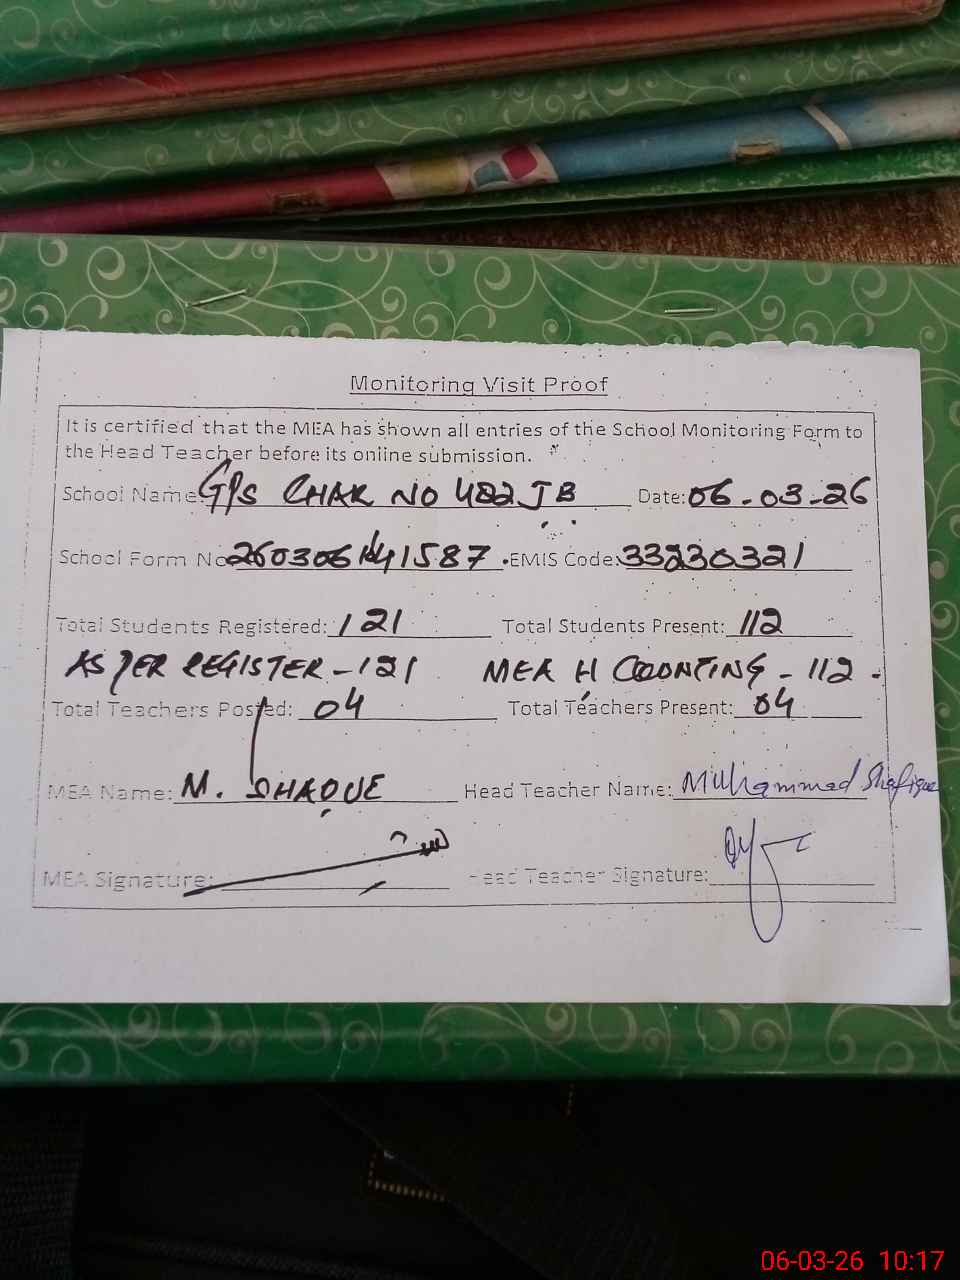 Monitoring Visit Proof
It is certified that the MEA has shown all entries of the School Monitoring Form to
the Head Teacher before its online submission.
School Name: GPS CHAK NO 482 JB Date: 06-03-26
School Form No 260306141587. EMIS Code: 33230321
Total Students Registered: 121 Total Students Present: 112
AS PER REGISTER - 121 MEA H COUNTING - 112.
Total Teachers Posted: 04 Total Teachers Present: 04
MEA Name: M. Head Teacher Name: Muhammad Shafique
MEA Signature: Head Teacher Signature:
06-03-26 10:17